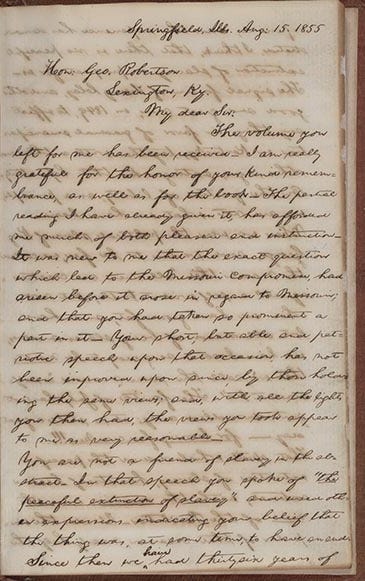 Springfield, Ills. Aug. 15. 1855
Hon. Geo. Robertson
Lexington, Ky.
My dear Sir:
The volume you
left for me has been received— I am really
grateful for the honor of your kind remem-
brance, as well as for the book— The partial
reading I have already given it, has afforded
me much of both pleasure and instruction—
It was new to me that the exact question
which led to the Missouri compromise, had
arisen before it arose in regard to Missouri;
and that you had taken so prominent a
part in it— Your short, but able and pat-
riotic speech upon that occasion, has not
been improved upon since by those hold-
ing the same views; and, with all the lights
you then had, the views you took appear
to me as very reasonable—
You are not a friend of slavery in the ab-
stract— In that speech you spoke of "the
peaceful extinction of slavery" and used oth-
er expressions indicating your belief that
the thing was, at some time, to have an end
Since then we have had thirty six years of